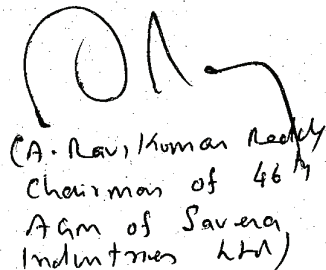 (A. Ravi Kumar Reddy
Chairman of 46th
AGM of Savera
Industries Ltd)